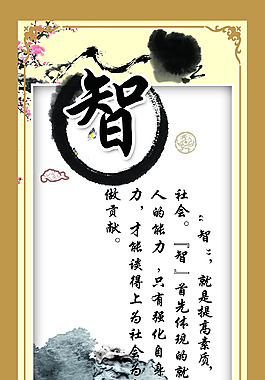 智
“智”，就是提高素质，
社会。『智』首先体现的就
人的能力,只有强化自身
力，才能谈得上为社会为
做贡献。